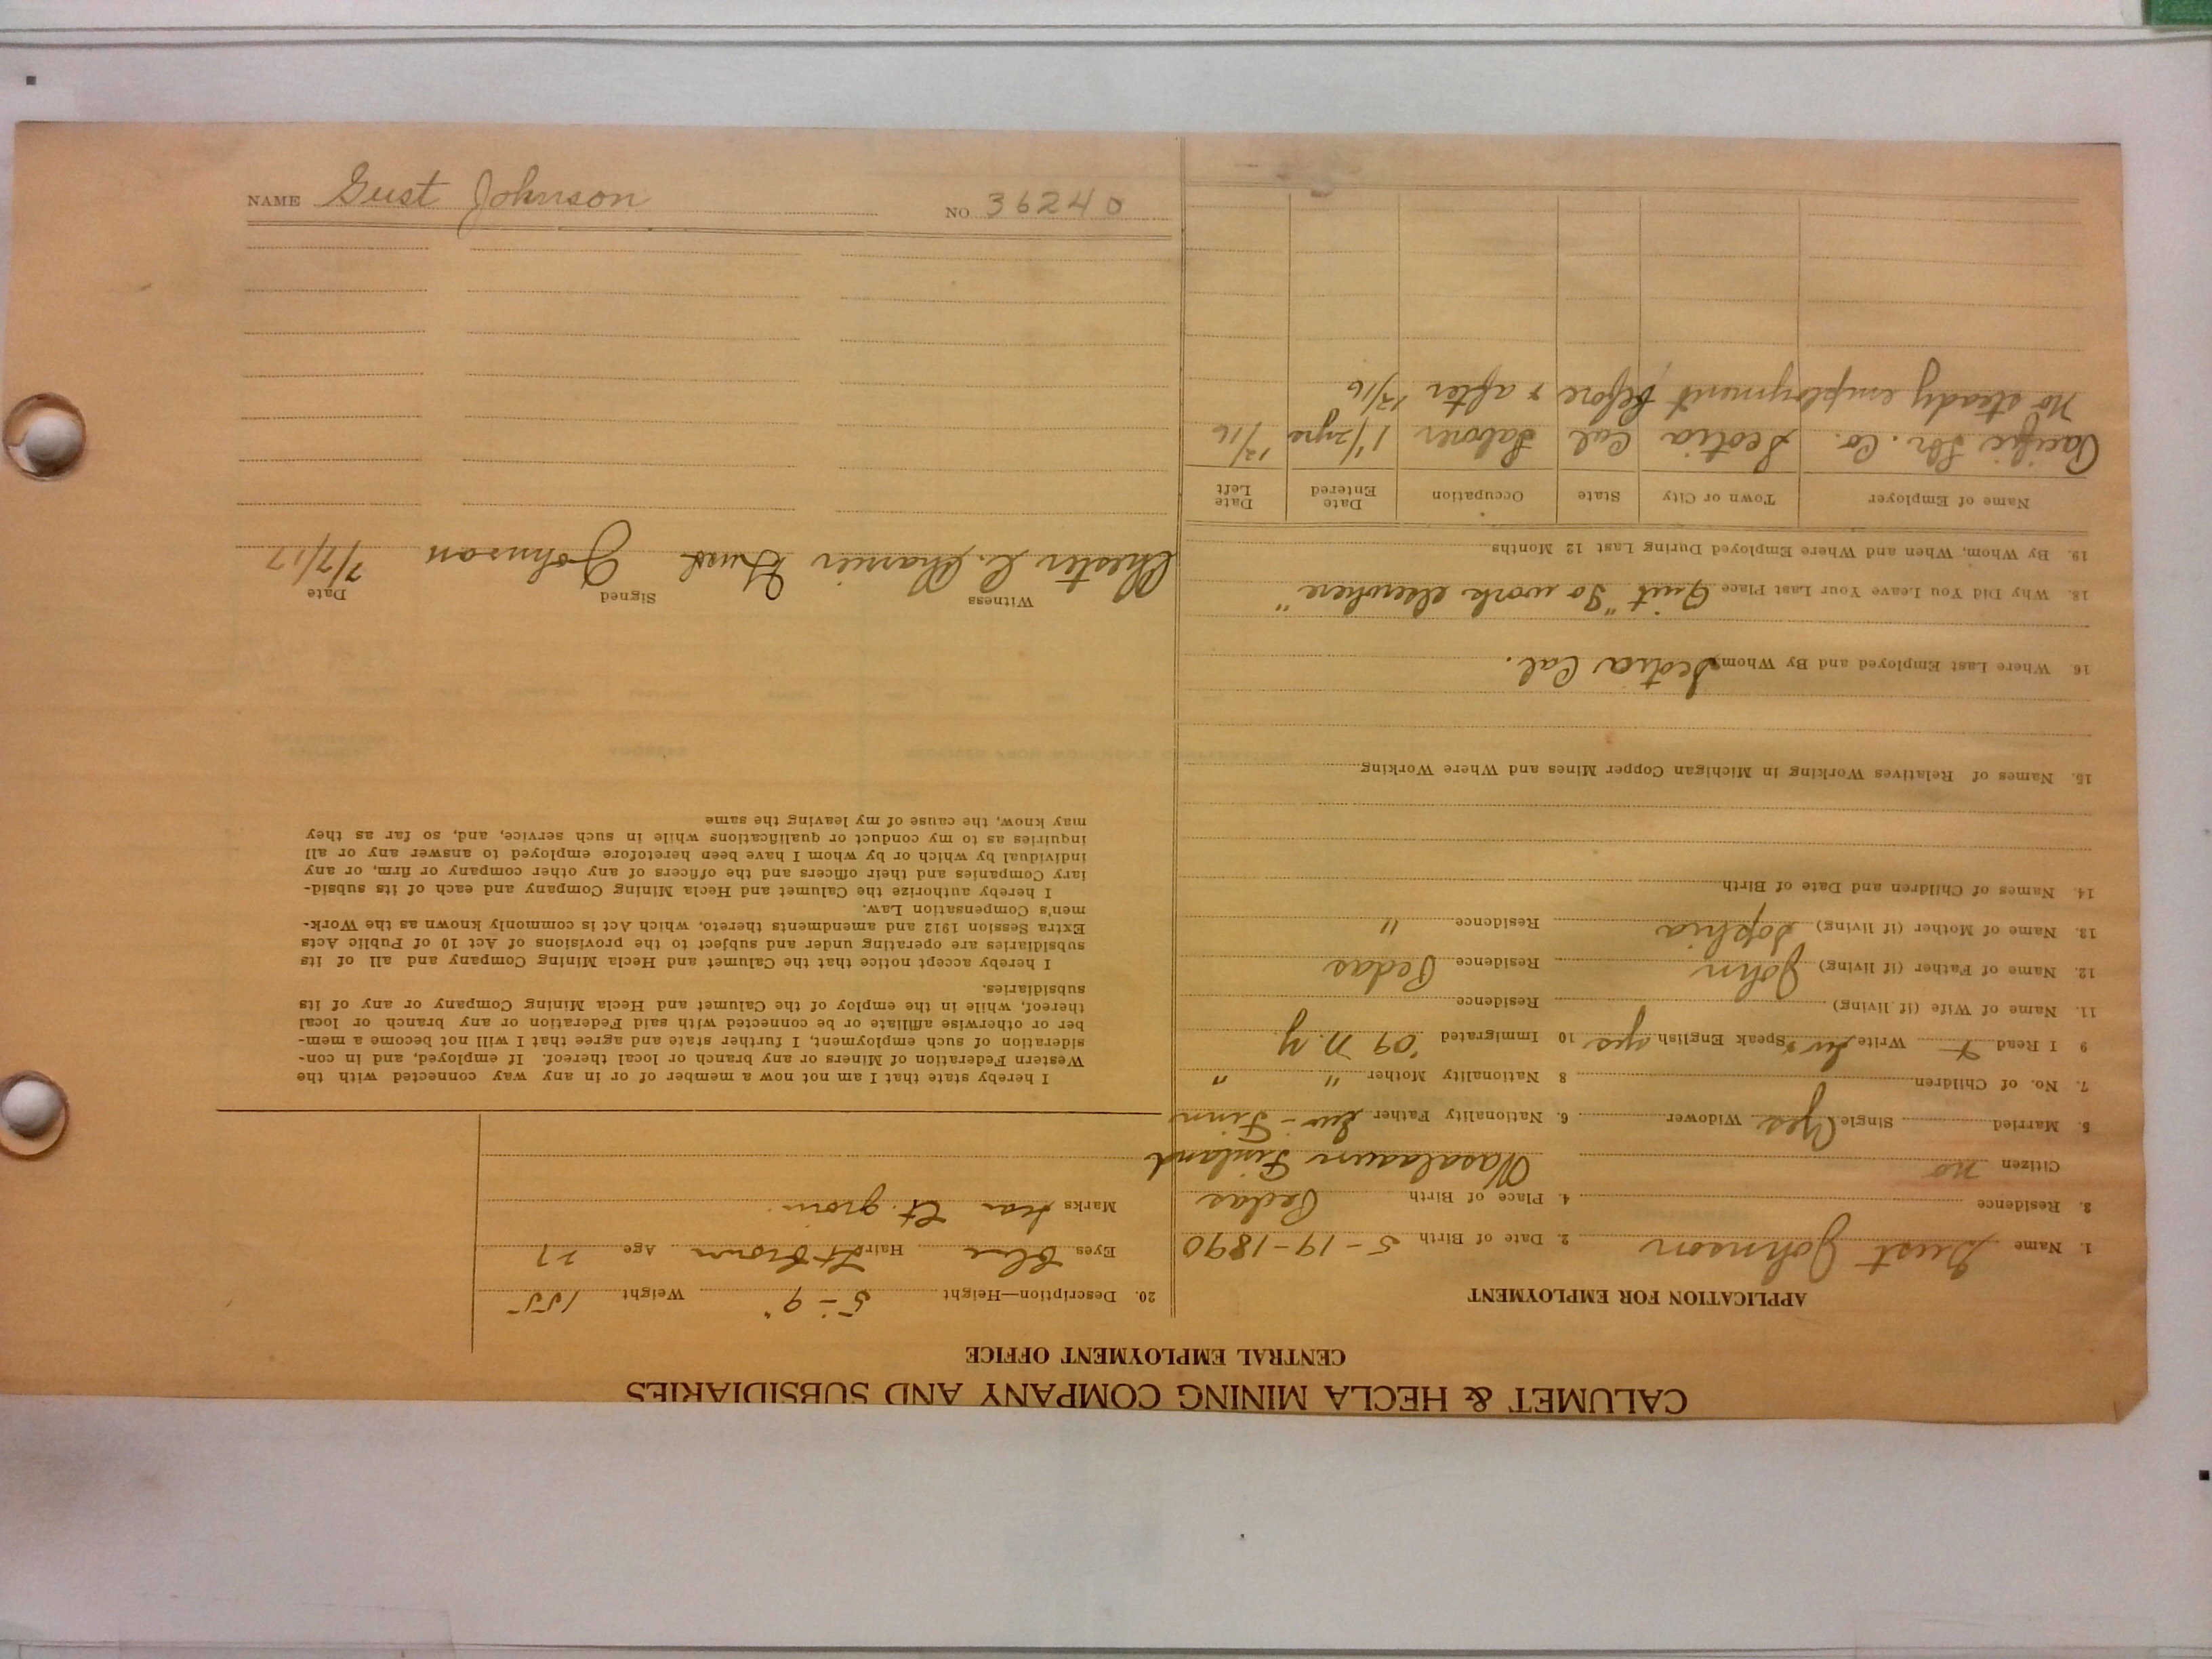 NAME Gust Johnson NO 36240
CALUMET & HECLA MINING COMPANY AND SUBSIDIARIES
CENTRAL EMPLOYMENT OFFICE
APPLICATION FOR EMPLOYMENT
1. Name Gust Johnson 2. Date of Birth 5-19-1890
3. Residence 4. Place of Birth Pedas
Citizen no Wasalaani Finland
5. Married Single yes Widower 6. Nationality Father Sw-Finn
7. No. of Children 8 Nationality Mother " "
9 I Read & Write Sw & Speak English yes 10 Immigrated '09 N.Y
11. Name of Wife (if living) Residence
12. Name of Father (if living) John Residence Pedas
13. Name of Mother (if living) Sophia Residence "
14. Names of Children and Date of Birth
15. Names of Relatives Working in Michigan Copper Mines and Where Working
16. Where Last Employed and By Whom Scotia Cal.
18. Why Did You Leave Your Last Place Quit "To work elsewhere"
19. By Whom, When and Where Employed During Last 12 Months
Name of Employer Town or City State Occupation Date Entered Date Left
Pacific Lbr. Co. Scotia Cal Laborer 1 1/2 yrs 12/16
No steady employment before & after 12/16
20. Description—Height 5-9" Weight 155
Eyes Blue Hair Lt Brown Age 27
Marks Scar Lt. groin.
I hereby state that I am not now a member of or in any way connected with the
Western Federation of Miners or any branch or local thereof. If employed, and in con-
sideration of such employment, I further state and agree that I will not become a mem-
ber or otherwise affiliate or be connected with said Federation or any branch or local
thereof, while in the employ of the Calumet and Hecla Mining Company or any of its
subsidiaries.
I hereby accept notice that the Calumet and Hecla Mining Company and all of its
subsidiaries are operating under and subject to the provisions of Act 10 of Public Acts
Extra Session 1912 and amendments thereto, which Act is commonly known as the Work-
men's Compensation Law.
I hereby authorize the Calumet and Hecla Mining Company and each of its subsid-
iary Companies and their officers and the officers of any other company or firm, or any
individual by which or by whom I have been heretofore employed to answer any or all
inquiries as to my conduct or qualifications while in such service, and, so far as they
may know, the cause of my leaving the same
Witness Signed Date
Chester C. Gust Johnson 7/7/17